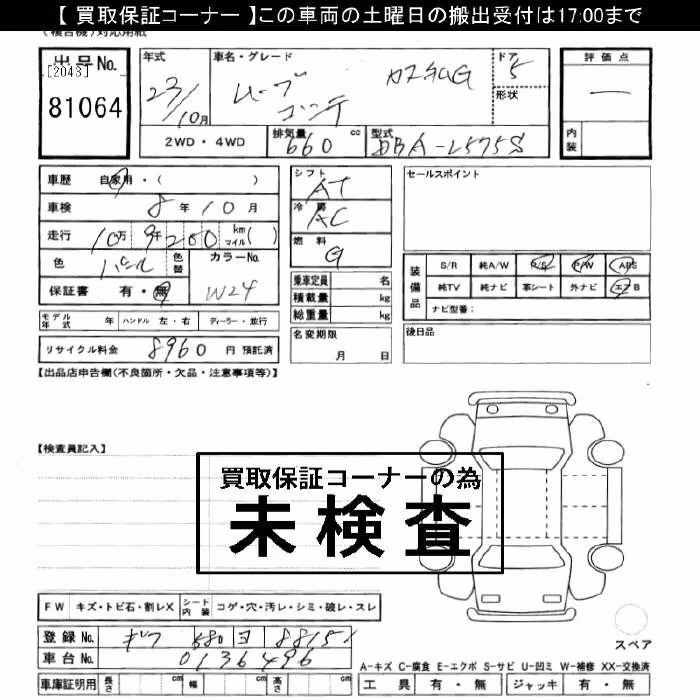 【 買取保証コーナー 】この車両の土曜日の搬出受付は17:00まで
出品No.
[2043]
81064
年式
23/10月
車名・グレード
ムーブ コンテ カスタムG
ドア 5
形状
評価点
—
内装
2WD・4WD
排気量 660 cc
型式 DBA-L575S
車歴 自家用・( )
車検 8年10月
走行 10万9千200 km マイル( )
色 パール 色替
カラーNo. W24
保証書 有・無
モデル年式 年 ハンドル 左・右 ディーラー・並行
リサイクル料金 8960 円 預託済
シフト AT
冷房 AC
燃料 G
乗車定員 名
積載量 kg
総重量 kg
名変期限 月 日
セールスポイント
装備品
S/R 純A/W P/S P/W ABS
純TV 純ナビ 革シート 外ナビ エアB
ナビ型番:
後日品
【出品店申告欄(不良箇所・欠品・注意事項等)】
【検査員記入】
買取保証コーナーの為
未検査
FW キズ・トビ石・割レX シート内装 コゲ・穴・汚レ・シミ・破レ・スレ
スペア
登録No. 580 ヨ
車台No. 0136496
A-キズ C-腐食 E-エクボ S-サビ U-凹ミ W-補修 XX-交換済
車庫証明用 長さ cm 幅 cm 高さ cm
工具 有・無 ジャッキ 有・無